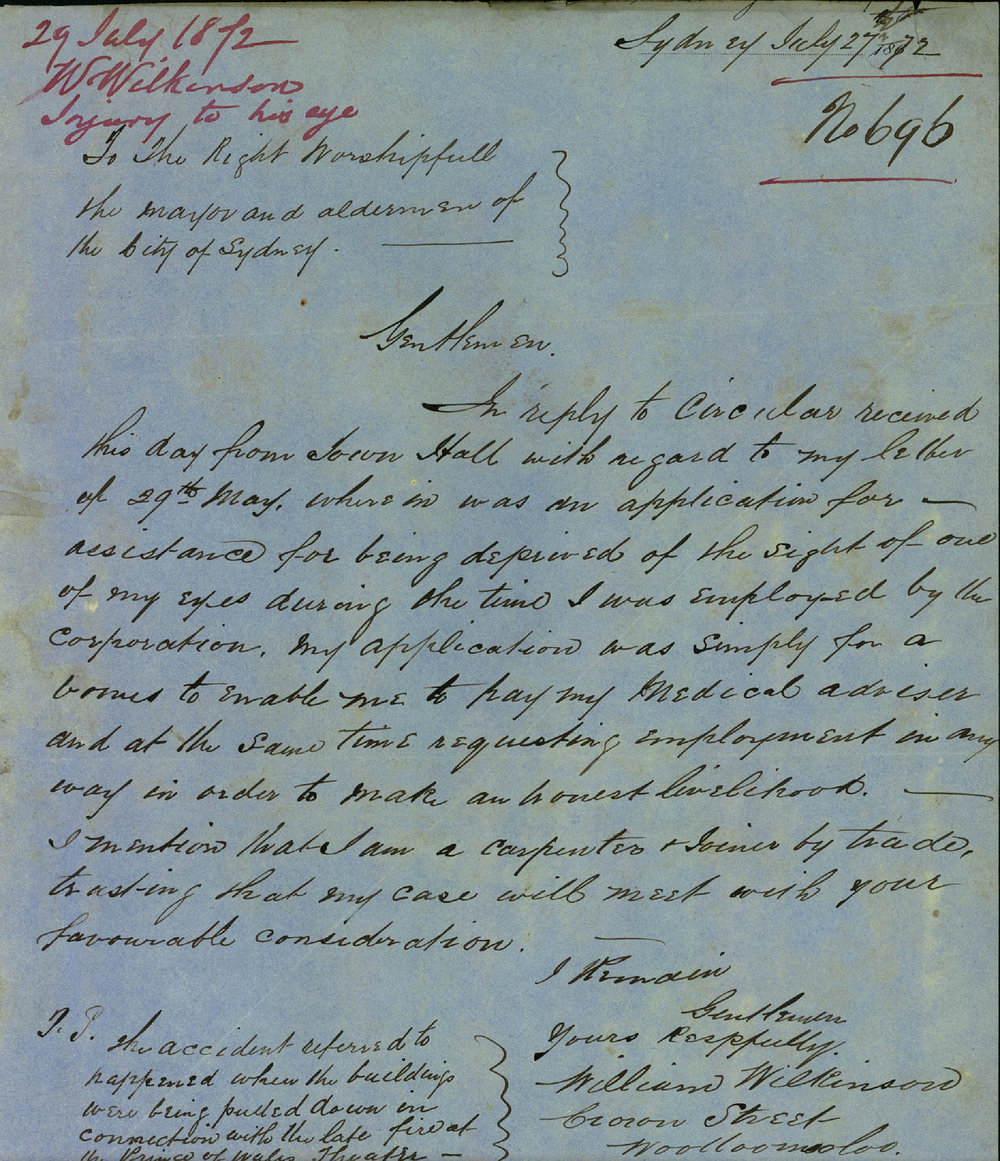 29 July 1872
W Wilkinson
Injury to his eye
Sydney July 27th 1872
No 696
To The Right Worshipfull
the mayor and aldermen of
the City of Sydney.
Gentlemen.
In reply to Circular received
this day from Town Hall with regard to my letter
of 29th May. wherein was an application for —
assistance for being deprived of the sight of one
of my eyes during the time I was employed by the
Corporation. my application was simply for a
bonus to enable me to pay my Medical adviser
and at the same time requesting employment in any
way in order to make an honest livelihood. —
I mention that I am a carpenter & Joiner by trade,
trusting that my case will meet with your
favourable consideration.
I Remain
Gentlemen
Yours Respfully.
William Wilkinson
Crown Street
Woolloomooloo.
The accident referred to
happened when the buildings
were being pulled down in
connection with the late fire at
the Prince of Wales Theatre —